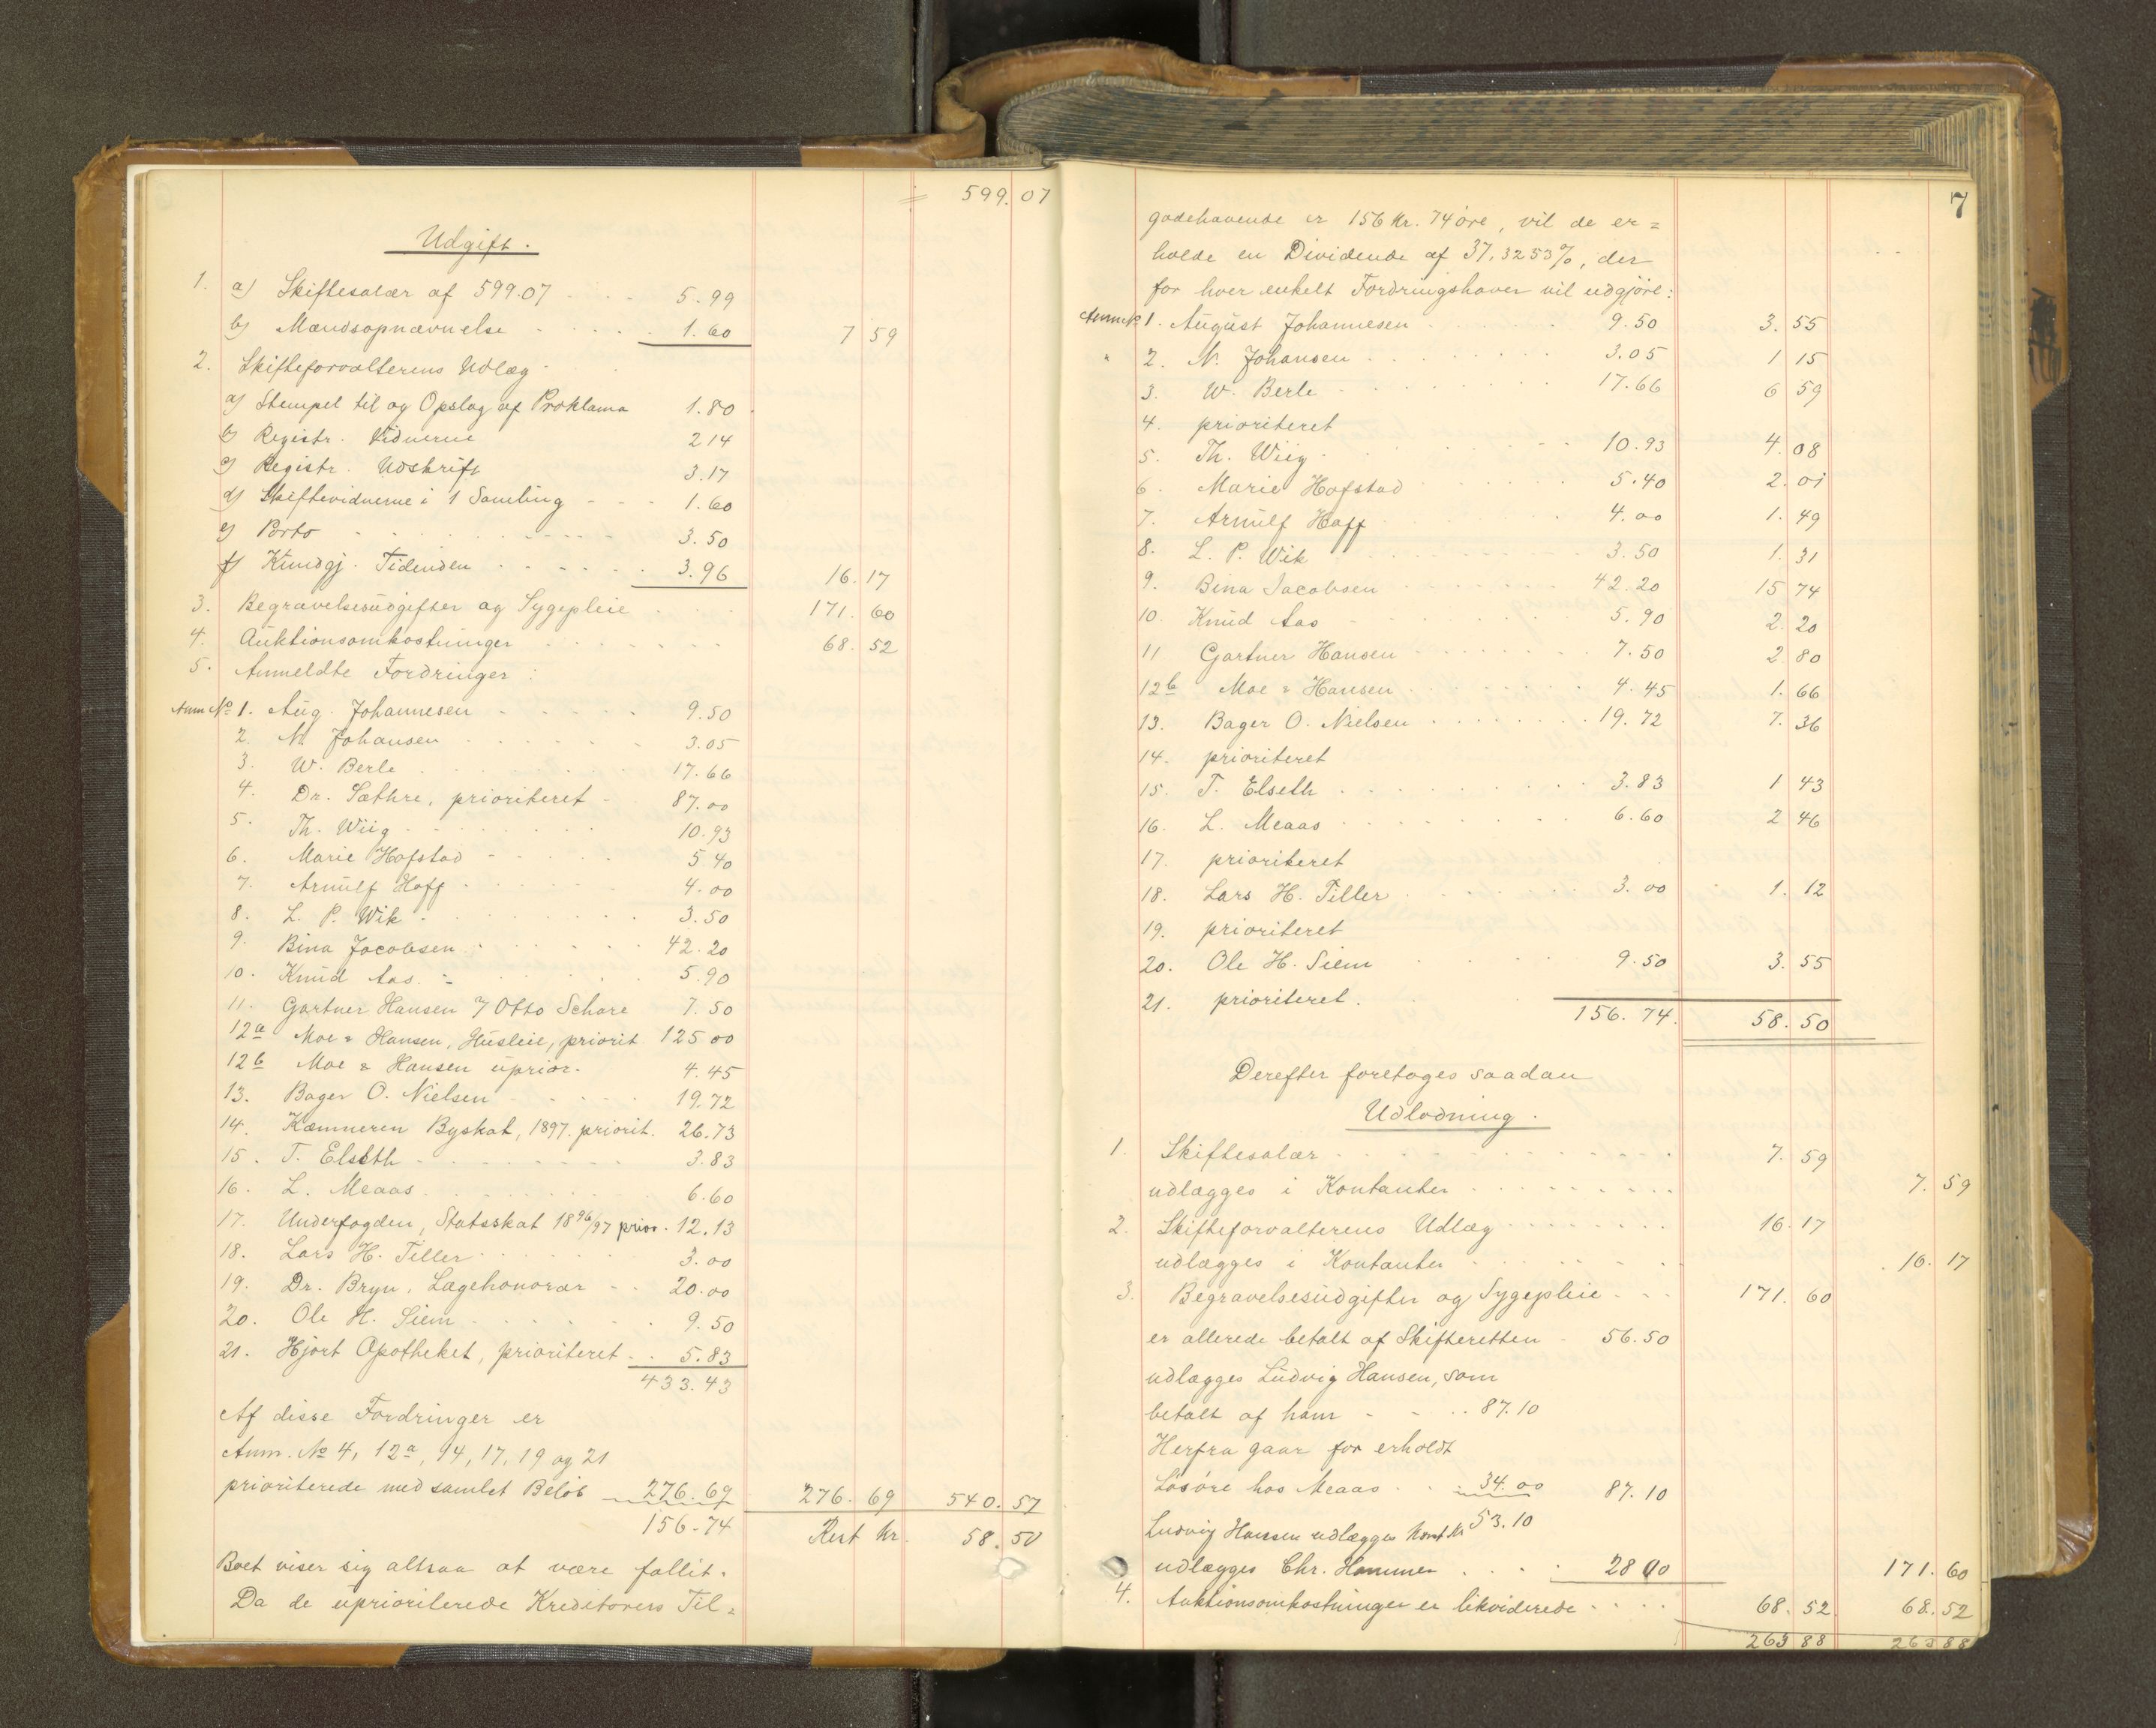 = 599.07
Udgift.
1. a) Skiftesalær af 599.07 5.99
b) Mandsopnævnelse 1.60 7 59
2. Skifteforvalterens Udlæg
a) Stempel til og Opslag af Proklama 1.80
b) Registr. Vidnerne 2 14
c) Registr. Udskrift 3.17
d) Skiftevidnerne i 1 Samling 1.60
e) Porto 3.50
f) Kundgj. Tidenden 3.96 16.17
3. Begravelsesudgifter og Sygepleie 171.60
4. Auktionsomkostninger 68.52
5. Anmeldte Fordringer:
Anm No 1. Aug. Johannesen 9.50
2. N. Johansen 3.05
3. W. Berle 17.66
4. Dr. Sæthre, prioriteret 87.00
5. Th. Wiig 10.93
6. Marie Hofstad 5 40
7. Arnulf Hoff 4.00
8. L. P. Wik 3.50
9. Bina Jacobsen 42.20
10. Knud Aas 5.90
11. Gartner Hansen Otto Schare 7.50
12a Moe & Hansen, Husleie, priorit 125 00
12b Moe & Hansen uprior. 4.45
13. Bager O. Nielsen 19.72
14. Kæmneren Byskat, 1897. priorit. 26.73
15. T. Elseth 3.83
16. L. Meaas 6.60
17. Underfogden, Statsskat 1896/97 prior. 12.13
18. Lars H. Tiller 3.00
19. Dr. Bryn, Lægehonorar 20.00
20. Ole H. Siem 9.50
21. Hjort Apotheket, prioriteret 5.83
433.43
Af disse Fordringer er
Anm. No 4, 12a, 14, 17, 19 og 21
prioriterede med samlet Beløb 276.69 276.69 540.57
156.74 Rest Kr. 58.50
Boet viser sig altsaa at være fallit.
Da de uprioriterede Kreditorers Til=
7
godehavende er 156 Kr. 74 øre, vil de er=
holde en Dividende af 37,3253%, der
for hver enkelt Fordringshaver vil udgjøre:
Anm No 1. August Johannesen 9.50 3.55
" 2. N. Johansen 3.05 1 15
3. W. Berle 17.66 6 59
4. prioriteret
5. Th. Wiig 10.93 4.08
6. Marie Hofstad 5.40 2.01
7. Arnulf Hoff 4.00 1.49
8. L. P. Wik 3.50 1.31
9. Bina Jacobsen 42.20 15 74
10. Knud Aas 5.90 2.20
11 Gartner Hansen 7.50 2.80
12b Moe & Hansen 4.45 1.66
13. Bager O. Nielsen 19.72 7.36
14. prioriteret
15. T. Elseth 3.83 1 43
16. L. Meaas 6.60 2 46
17. prioriteret
18. Lars H. Tiller 3.00 1.12
19. prioriteret
20. Ole H. Siem 9.50 3.55
21. prioriteret.
156.74. 58.50
Derefter foretages saadan
Udlodning.
1. Skiftesalær 7.59
udlægges i Kontanter 7.59
2. Skifteforvalterens Udlæg 16.17
udlægges i Kontanter 16.17
3. Begravelsesudgifter og Sygepleie 171.60
er allerede betalt af Skifteretten 56.50
udlægges Ludvig Hansen, som
betalt af ham 87.10
Herfra gaar for erholdt
Løsøre hos Meaas 34.00 87.10
Ludvig Hansen udlægges Kont Kr 53.10
udlægges Chr. Hammer 28 00 171.60
4. Auktionsomkostninger er likviderede 68.52 68.52
263 88 263 88